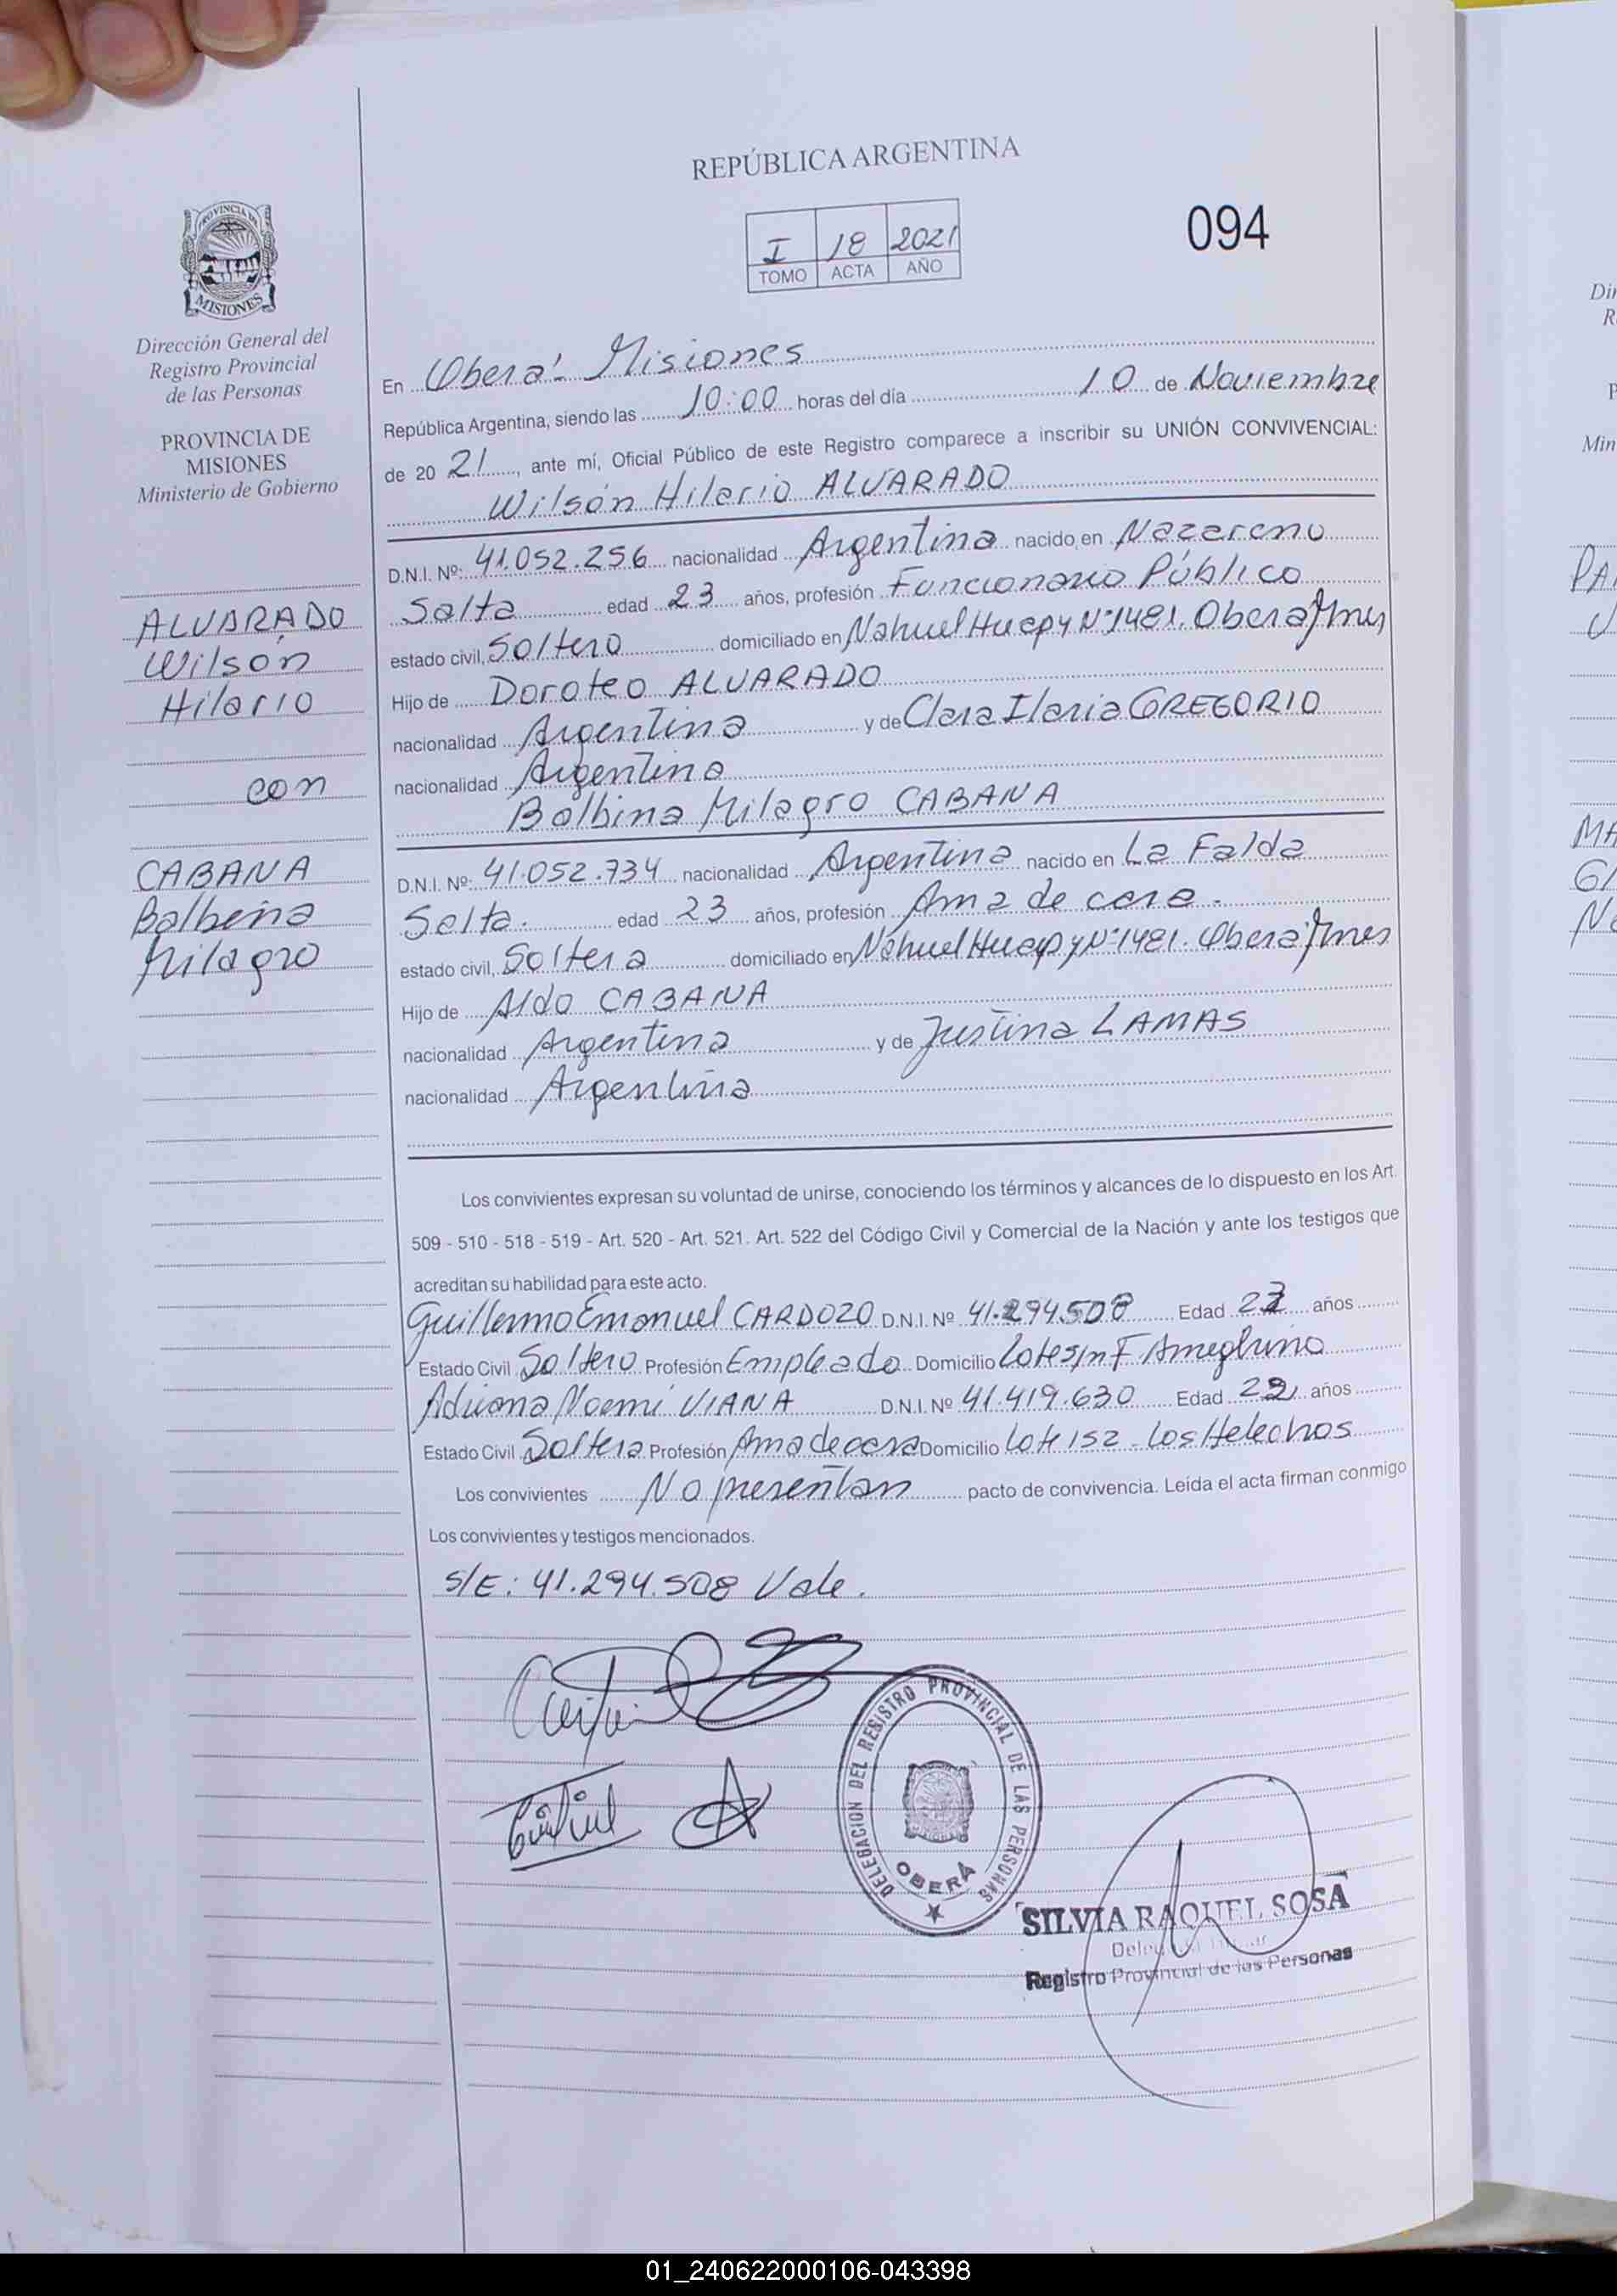 REPÚBLICA ARGENTINA
I 18 2021
TOMO ACTA AÑO
094
PROVINCIA DE
MISIONES
Dirección General del
Registro Provincial
de las Personas
PROVINCIA DE
MISIONES
Ministerio de Gobierno
ALVARADO
Wilsón
Hilario
con
CABANA
Balbena
Milagro
En Oberá. Misiones
República Argentina, siendo las 10:00 horas del día 10 de Noviembre
de 20 21, ante mí, Oficial Público de este Registro comparece a inscribir su UNIÓN CONVIVENCIAL:
Wilsón Hilario ALVARADO
D.N.I. Nº: 41.052.256 nacionalidad Argentina nacido en Nazareno
Salta edad 23 años, profesión Funcionario Público
estado civil, Soltero domiciliado en Nahuel Huapy Nº1481. Oberá Mnes
Hijo de Doroteo ALVARADO
nacionalidad Argentina y de Clara Ilaria GREGORIO
nacionalidad Argentina
Balbina Milagro CABANA
D.N.I. Nº: 41.052.734 nacionalidad Argentina nacido en La Falda
Salta. edad 23 años, profesión Ama de casa.
estado civil, Soltera domiciliado en Nahuel Huapy Nº1481. Oberá Mnes
Hijo de Aldo CABANA
nacionalidad Argentina y de Justina LAMAS
nacionalidad Argentina
Los convivientes expresan su voluntad de unirse, conociendo los términos y alcances de lo dispuesto en los Art.
509 - 510 - 518 - 519 - Art. 520 - Art. 521. Art. 522 del Código Civil y Comercial de la Nación y ante los testigos que
acreditan su habilidad para este acto.
Guillermo Emanuel CARDOZO D.N.I. Nº 41.294.508 Edad años
Estado Civil Soltero Profesión Empleado Domicilio Lote s/n F. Ameghino
Adriana Noemi VIANA D.N.I. Nº 41.419.630 Edad años
Estado Civil Soltera Profesión Ama de casa Domicilio Lote 152 - Los Helechos
Los convivientes No presentan pacto de convivencia. Leída el acta firman conmigo
Los convivientes y testigos mencionados.
S/E: 41.294.508 Vale.
DELEGACION DEL REGISTRO PROVINCIAL DE LAS PERSONAS
OBERÁ
SILVIA RAQUEL SOSA
Registro Provincial de las Personas
01_240622000106-043398